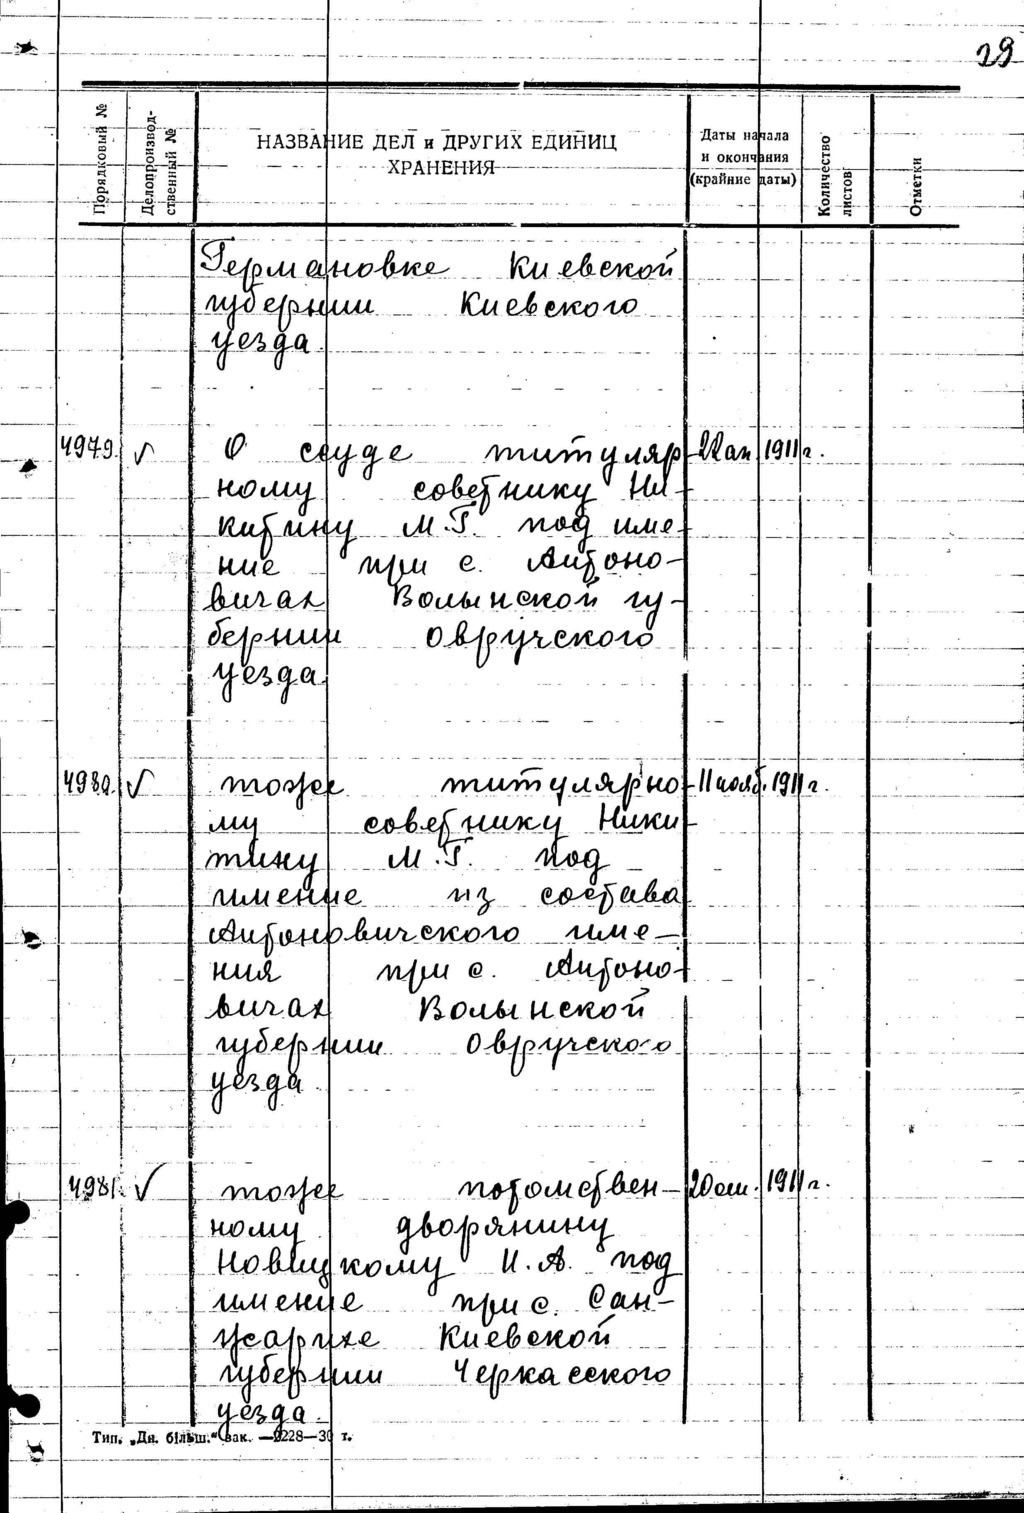 29
Порядковый №
Делопроизвод-
ственный №
НАЗВАНИЕ ДЕЛ и ДРУГИХ ЕДИНИЦ
ХРАНЕНИЯ
Даты начала
и окончания
(крайние даты)
Количество
листов
Отметки
Германовке Киевской
губернии Киевского
уезда.
4979. √ О ссуде титуляр 22 ап. 1911 г.
ному советнику Ни-
китину М.Г. под име-
ние при с. Антоно-
вичах Волынской гу-
бернии Овручского
уезда.
4980. √ тоже титулярно- 11 нояб. 1911 г.
му советнику Ники-
тину М.Г. под
имение из состава
Антоновичского име-
ния при с. Антоно-
вичах Волынской
губернии Овручского
уезда.
4981. √ тоже потомствен- 20 1911 г.
ному дворянину
Новицкому И.А. под
имение при с. Сан-
жарихе Киевской
губернии Черкасского
уезда.
Тип. „Дн. більш.“ зак. —2228—30 т.